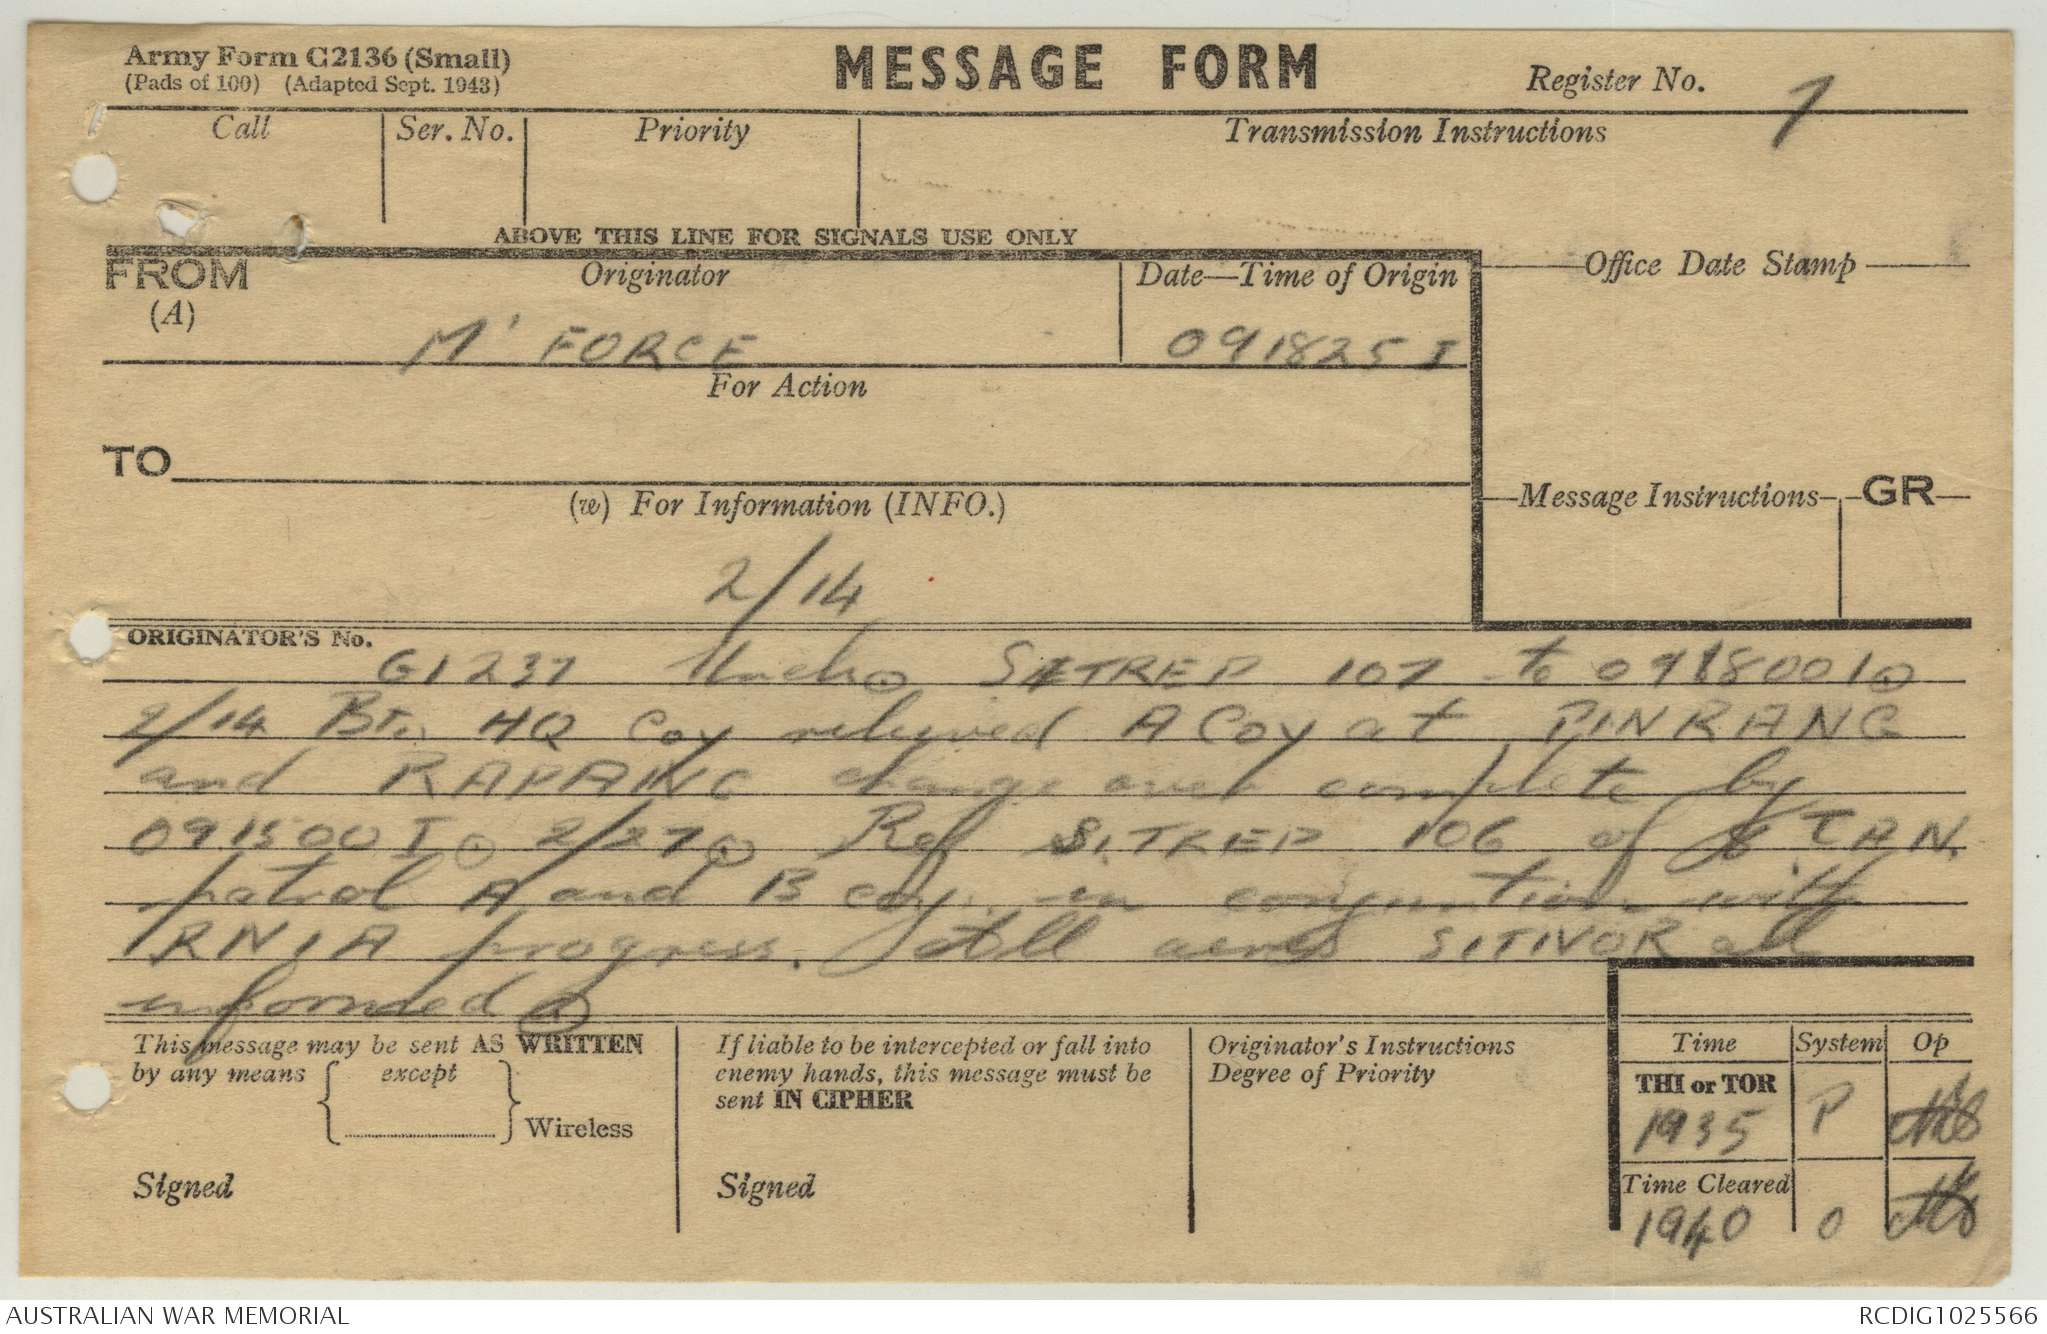 Army Form C2136 (Small)
(Pads of 100) (Adapted Sept. 1943)
MESSAGE FORM
Register No.
7
Call
Ser. No.
Priority
Transmission Instructions
ABOVE THIS LINE FOR SIGNALS USE ONLY
FROM
(A)
Originator
Date—Time of Origin
Office Date Stamp
M' FORCE
091825 I
For Action
TO
(w) For Information (INFO.)
Message Instructions
GR
2/14
ORIGINATOR'S No.
G1237 SITREP 107 to 091800I
2/14 Bn. HQ Coy relieved A Coy at PINRANG
and RAPPANG change over complete by
091500 I 2/27 Ref SITREP 106 of
patrol A and B coy. in conjunction with
RNIA progress. still SITIVOR all
informed
This message may be sent AS WRITTEN
by any means except
Wireless
Signed
If liable to be intercepted or fall into
enemy hands, this message must be
sent IN CIPHER
Signed
Originator's Instructions
Degree of Priority
Time System Op
THI or TOR
1935 P
Time Cleared
1940 O
AUSTRALIAN WAR MEMORIAL
RCDIG1025566